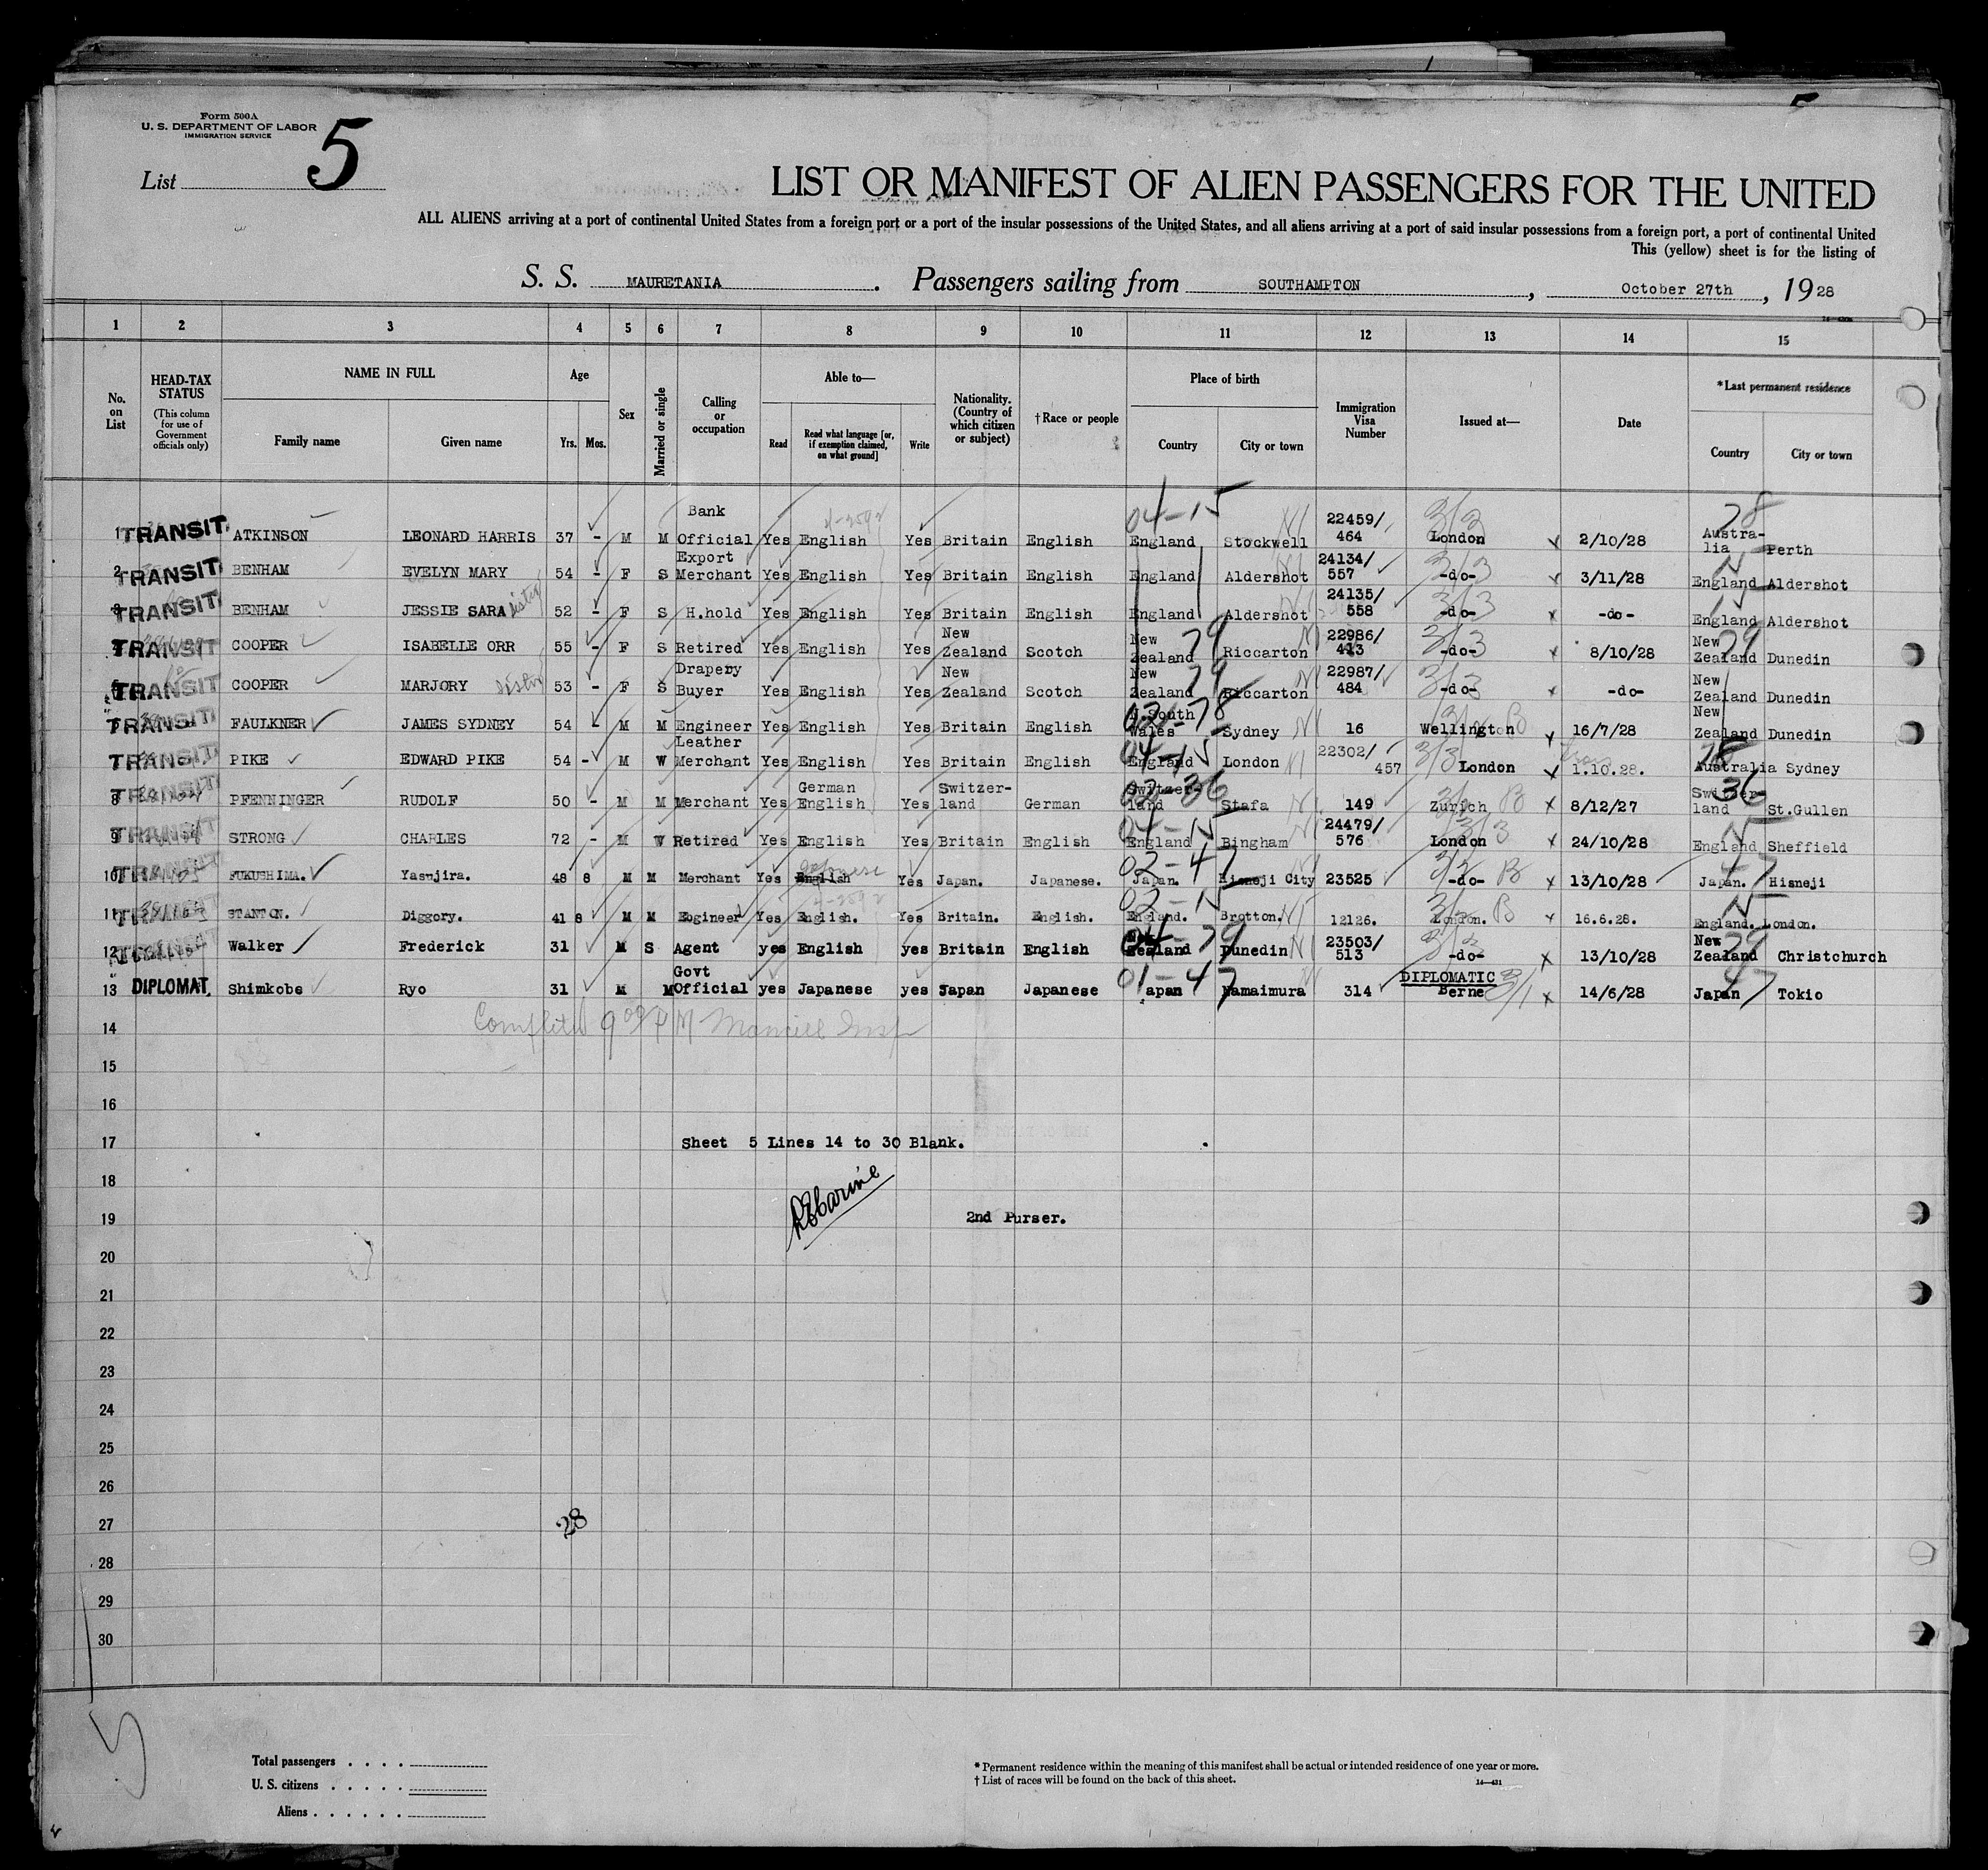 Form 500A
U. S. DEPARTMENT OF LABOR
IMMIGRATION SERVICE
List 5
LIST OR MANIFEST OF ALIEN PASSENGERS FOR THE UNITED
ALL ALIENS arriving at a port of continental United States from a foreign port or a port of the insular possessions of the United States, and all aliens arriving at a port of said insular possessions from a foreign port, a port of continental United
This (yellow) sheet is for the listing of
S. S. MAURETANIA. Passengers sailing from SOUTHAMPTON, October 27th, 1928
1 2 3 4 5 6 7 8 9 10 11 12 13 14 15
No. on List
HEAD-TAX STATUS (This column for use of Government officials only)
NAME IN FULL Family name Given name
Age Yrs. Mos.
Sex
Married or single
Calling or occupation
Able to— Read Read what language [or, if exemption claimed, on what ground] Write
Nationality. (Country of which citizen or subject)
† Race or people
Place of birth Country City or town
Immigration Visa Number
Issued at—
Date
*Last permanent residence Country City or town
1 TRANSIT ATKINSON LEONARD HARRIS 37 - M M Bank Official Yes English Yes Britain English 04-15 England Stockwell 22459/464 3/3 London 2/10/28 Australia Perth
2 TRANSIT BENHAM EVELYN MARY 54 - F S Export Merchant Yes English Yes Britain English England Aldershot 24134/557 3/3 -do- 3/11/28 England Aldershot
3 TRANSIT BENHAM JESSIE SARA sister 52 - F S H.hold Yes English Yes Britain English England Aldershot 24135/558 3/3 -do- -do- England Aldershot
TRANSIT COOPER ISABELLE ORR 55 - F S Retired Yes English Yes New Zealand Scotch New Zealand 79 Riccarton 22986/ 3/3 -do- 8/10/28 New Zealand 79 Dunedin
TRANSIT COOPER MARJORY sister 53 - F S Drapery Buyer Yes English Yes New Zealand Scotch New Zealand 79 Riccarton 22987/484 3/3 -do- -do- New Zealand Dunedin
TRANSIT FAULKNER JAMES SYDNEY 54 - M M Engineer Yes English Yes Britain English N.South Wales 02-78 Sydney 16 Wellington B 16/7/28 New Zealand Dunedin
TRANSIT PIKE EDWARD PIKE 54 - M W Leather Merchant Yes English Yes Britain English 04-15 England London 22302/457 3/3 London 1.10.28. 78 Australia Sydney
8 TRANSIT PFENNINGER RUDOLF 50 - M M Merchant Yes German English Yes Switzer-land German Switzer-land 36 Stafa 149 Zurich B 8/12/27 Switzer-land 36 St.Gullen
9 TRANSIT STRONG CHARLES 72 - M W Retired Yes English Yes Britain English 04-15 England Bingham 24479/576 3/3 London 24/10/28 England Sheffield
10 TRANSIT FUKUSHIMA. Yasujira. 48 8 M M Merchant Yes English Yes Japan. Japanese. 02-47 Japan. Hismeji City 23525 -do- B 13/10/28 47 Japan. Hisneji
11 TRANSIT STANTON. Diggory. 41 8 M M Engineer Yes English. Yes Britain. English. 02-15 England. Brotton. 12126. London. B 16.6.28. England. London.
12 TRANSIT Walker Frederick 31 M S Agent yes English yes Britain English 79 Zealand Dunedin 23503/513 3/3 -do- 13/10/28 New Zealand 79 Christchurch
13 DIPLOMAT. Shimkobe Ryo 31 M M Govt Official yes Japanese yes Japan Japanese 01-47 apan Namaimura 314 DIPLOMATIC Berne 3/1 14/6/28 Japan 47 Tokio
14 Completed 9 00 PM Insp
15
16
17 Sheet 5 Lines 14 to 30 Blank.
18
19 2nd Purser.
20
21
22
23
24
25
26
27 28
28
29
30
Total passengers
U. S. citizens
Aliens
* Permanent residence within the meaning of this manifest shall be actual or intended residence of one year or more.
† List of races will be found on the back of this sheet.
14—431